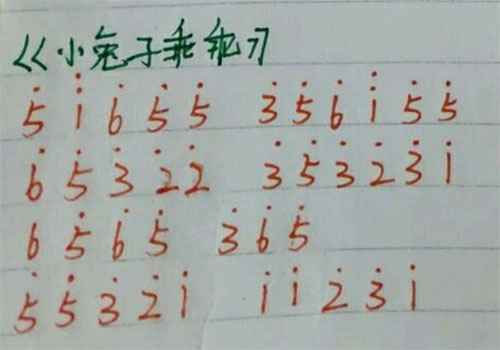 《小兔子乖乖》
5̇ 1̇ 6̇ 5̇ 5̇ 3̇ 5̇ 6̇ 1̇ 5̇ 5̇
6̇ 5̇ 3̇ 2̇ 2̇ 3̇ 5̇ 3̇ 2̇ 3̇ 1̇
6 5̇ 6̇ 5̇ 3̇ 6̇ 5̇
5̇ 5̇ 3̇ 2̇ 1̇ 1̇ 1̇ 2̇ 3̇ 1̇